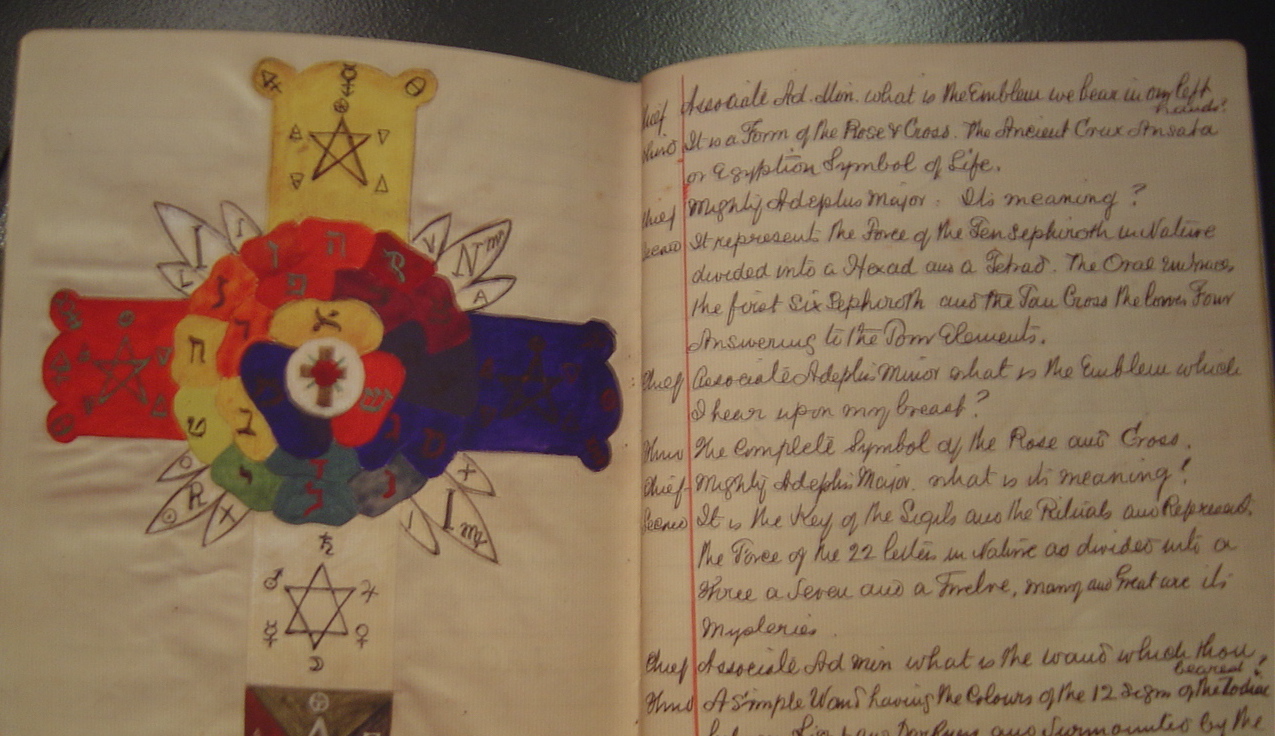 I
I
L
V
N
A
R
X
X
I
I
Chief Associate Ad. Min. what is the Emblem we bear in my left
hands?
It is a Form of the Rose & Cross. The Ancient Crux Ansata
or Egyptian Symbol of Life.
Chief Mighty Adeptus Major. Its meaning?
Second It represents the Force of the Ten Sephiroth in Nature
divided into a Hexad and a Tetrad. The Oval embraces
the first Six Sephiroth and the Tau Cross the lower Four
Answering to the Four Elements.
Chief Associate Adeptus Minor what is the Emblem which
I bear upon my breast?
Third The Complete Symbol of the Rose and Cross.
Chief Mighty Adeptus Major. what is its meaning?
Second It is the Key of the Sigils and the Rituals and Represents
the Force of the 22 letters in Nature as divided into a
Three a Seven and a Twelve, many and Great are its
Mysteries.
Chief Associate Ad Min what is the wand which thou
bearest?
Third A Simple Wand having the Colours of the 12 Signs of the Zodiac
between Light and Darkness and Surmounted by the